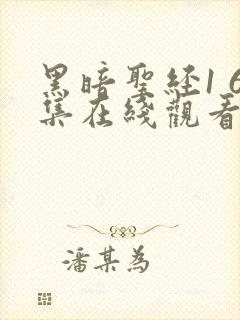 黑暗聖経1 6
集在綫觀看
潘某為